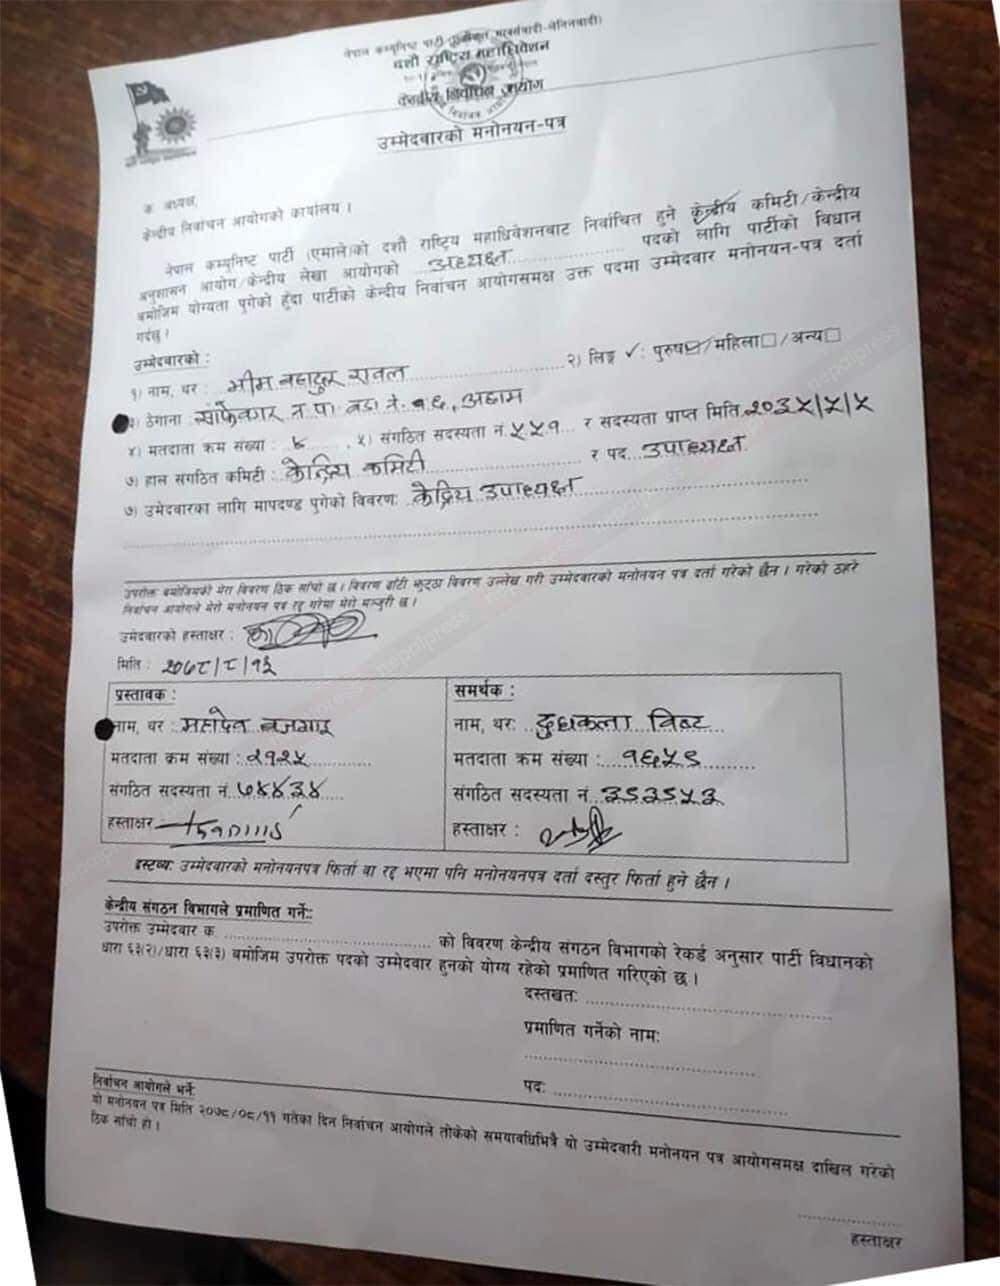 नेपाल कम्युनिष्ट पार्टी (एकीकृत मार्क्सवादी-लेनिनवादी)
दशौं राष्ट्रिय महाधिवेशन
केन्द्रीय निर्वाचन आयोग
उम्मेदवारको मनोनयन-पत्र
क. अध्यक्ष,
केन्द्रीय निर्वाचन आयोगको कार्यालय ।
नेपाल कम्युनिष्ट पार्टी (एमाले)को दशौं राष्ट्रिय महाधिवेशनबाट निर्वाचित हुने केन्द्रीय कमिटी/केन्द्रीय
अनुशासन आयोग/केन्द्रीय लेखा आयोगको अध्यक्ष पदको लागि पार्टीको विधान
बमोजिम योग्यता पुगेको हुँदा पार्टीको केन्द्रीय निर्वाचन आयोगसमक्ष उक्त पदमा उम्मेदवार मनोनयन-पत्र दर्ता
गर्दछु ।
उम्मेदवारको :
१) नाम, थर : भीम बहादुर रावल २) लिङ्ग ✓: पुरुष☑/महिला☐/अन्य☐
ठेगाना : साँफेबगर न.पा. वडा नं. १६, अछाम
४) मतदाता क्रम संख्या : ५) संगठित सदस्यता नं. ५५१ र सदस्यता प्राप्त मिति २०३५/५/५
७) हाल संगठित कमिटी : केन्द्रिय कमिटी र पद उपाध्यक्ष
७) उमेदवारका लागि मापदण्ड पुगेको विवरण: केन्द्रिय उपाध्यक्ष
उपरोक्त बमोजिमको मेरा विवरण ठिक साँचो छ । विवरण ढाँटी झुट्ठा विवरण उल्लेख गरी उम्मेदवारको मनोनयन पत्र दर्ता गरेको छैन । गरेको ठहरे
निर्वाचन आयोगले मेरो मनोनयन पत्र रद्द गरेमा मेरो मञ्जुरी छ ।
उमेदवारको हस्ताक्षर :
मिति : २०७८/८/१३
प्रस्तावक :
नाम, थर : महादेव बजगाई
मतदाता क्रम संख्या : २१२५
संगठित सदस्यता नं. ७४४३४
हस्ताक्षर
समर्थक :
नाम, थर: दुधकला विष्ट
मतदाता क्रम संख्या : १६५९
संगठित सदस्यता नं. ३९३५५३
हस्ताक्षर :
द्रस्टव्य: उम्मेदवारको मनोनयनपत्र फिर्ता वा रद्द भएमा पनि मनोनयनपत्र दर्ता दस्तुर फिर्ता हुने छैन ।
केन्द्रीय संगठन विभागले प्रमाणित गर्ने::
उपरोक्त उम्मेदवार क को विवरण केन्द्रीय संगठन विभागको रेकर्ड अनुसार पार्टी विधानको
धारा ६३(२)/धारा ६३(३) बमोजिम उपरोक्त पदको उम्मेदवार हुनको योग्य रहेको प्रमाणित गरिएको छ ।
दस्तखत:
प्रमाणित गर्नेको नाम:
पद:
निर्वाचन आयोगले भर्ने:
यो मनोनयन पत्र मिति २०७८/०८/११ गतेका दिन निर्वाचन आयोगले तोकेको समयावधिभित्रै यो उम्मेदवारी मनोनयन पत्र आयोगसमक्ष दाखिल गरेको
ठिक साँचो हो ।
हस्ताक्षर